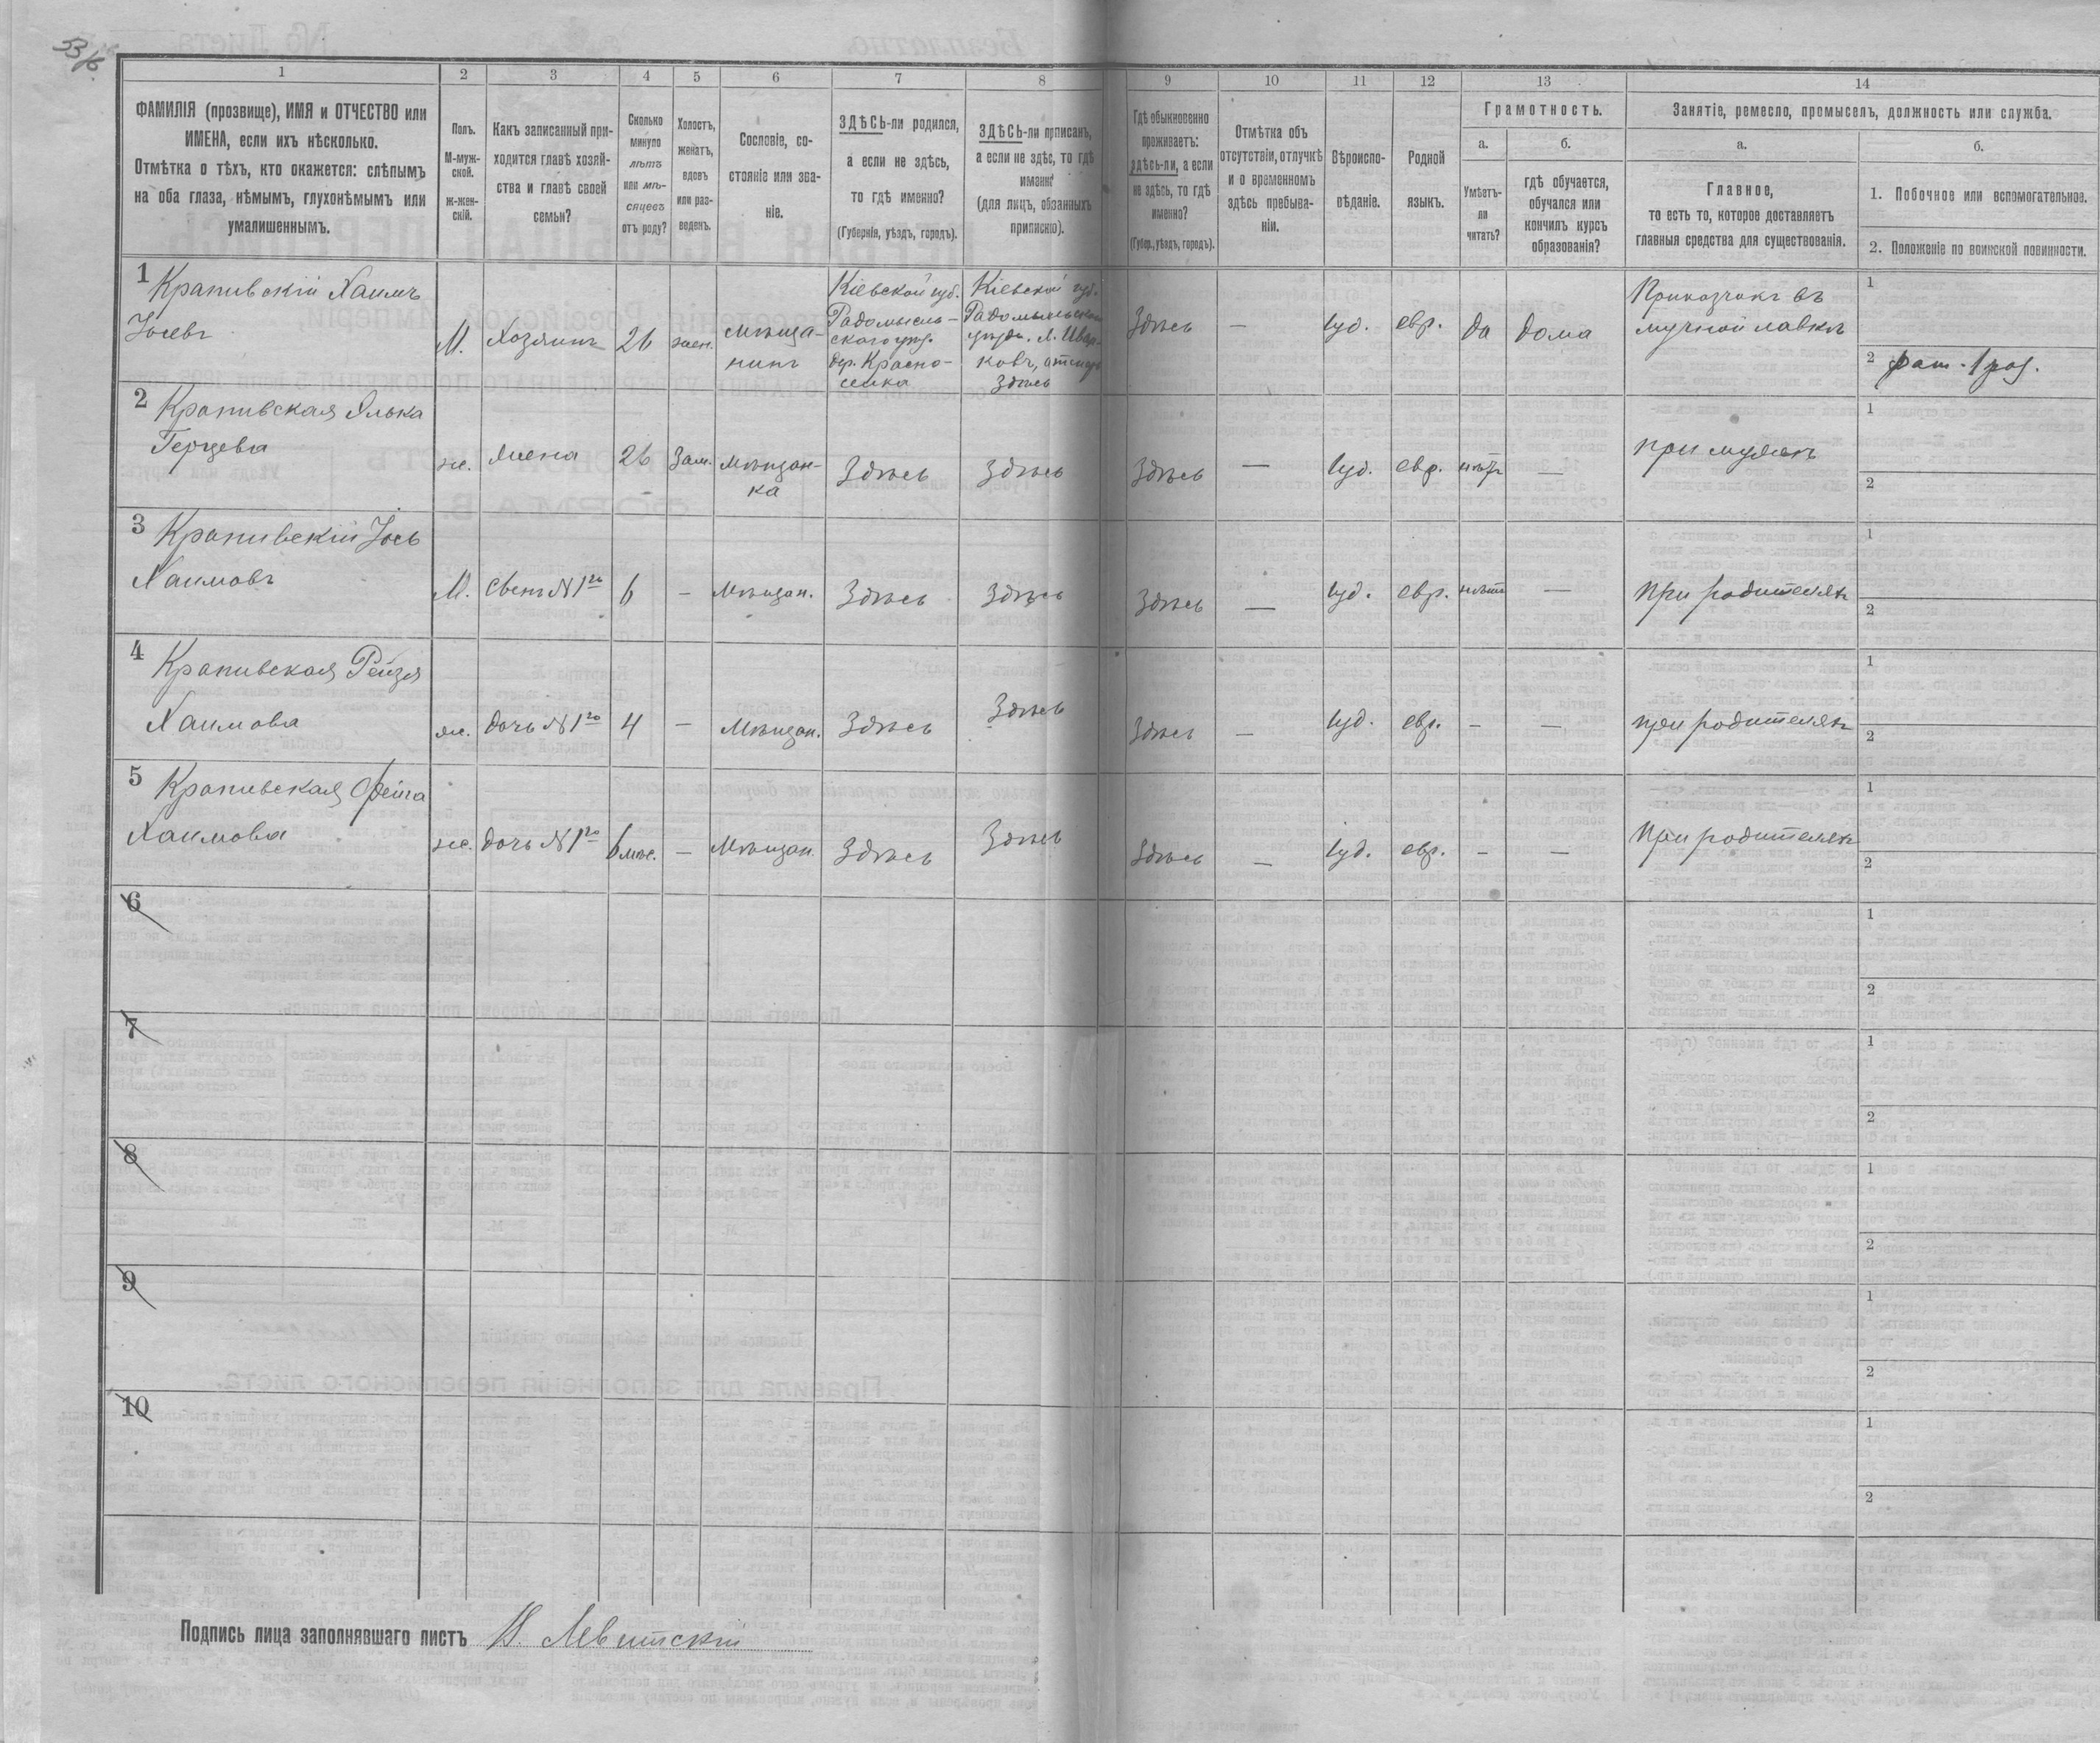 53/6
1 2 3 4 5 6 7 8 9 10 11 12 13 14
ФАМИЛІЯ (прозвище), ИМЯ и ОТЧЕСТВО или
ИМЕНА, если ихъ нѣсколько.
Отмѣтка о тѣхъ, кто окажется: слѣпымъ
на оба глаза, нѣмымъ, глухонѣмымъ или
умалишеннымъ.
Полъ.
М-муж-
ской.
ж-жен-
скій.
Какъ записанный при-
ходится главѣ хозяй-
ства и главѣ своей
семьи?
Сколько
минуло
лѣтъ
или мѣ-
сяцевъ
отъ роду?
Холостъ,
женатъ,
вдовъ
или раз-
веденъ.
Сословіе, со-
стояніе или зва-
ніе.
ЗДѢСЬ-ли родился,
а если не здѣсь,
то гдѣ именно?
(Губернія, уѣздъ, городъ).
ЗДѢСЬ-ли приписанъ,
а если не здѣс, то гдѣ
именно?
(для лицъ, обязанныхъ
припискою).
Гдѣ обыкновенно
проживаетъ:
здѣсь-ли, а если
не здѣсь, то гдѣ
именно?
(Губер., уѣздъ, городъ).
Отмѣтка объ
отсутствіи, отлучкѣ
и о временномъ
здѣсь пребыва-
ніи.
Вѣроиспо-
вѣданіе.
Родной
языкъ.
Грамотность.
а.
Умѣетъ-
ли
читать?
б.
гдѣ обучается,
обучался или
кончилъ курсъ
образованія?
Занятіе, ремесло, промыселъ, должность или служба.
а.
Главное,
то есть то, которое доставляетъ
главныя средства для существованія.
б.
1. Побочное или вспомогательное.
2. Положеніе по воинской повинности.
1 Крапивскій Хаимъ
Іосевъ
М.
Хозяинъ
26
жен.
мѣща-
нинъ
Кіевской губ.
Радомысль-
скаго уѣз.
дер. Красно-
селка
Кіевской губ.
Радомысльскаго
Здѣсь
Здѣсь
—
Іуд.
евр.
да
дома
Приказчикъ въ
мучной лавкѣ
1
2 рат. 1 раз.
2 Крапивская Элька
Герцева
ж.
Жена
26
Зам.
Мѣщан-
ка
Здѣсь
Здѣсь
Здѣсь
—
Іуд.
евр.
нѣтъ
—
при мужѣ
1
2
3 Крапивскій Іось
Хаимовъ
М.
Сынъ №1го
6
—
Мѣщан.
Здѣсь
Здѣсь
Здѣсь
—
Іуд.
евр.
нѣтъ
—
При родителяхъ
1
2
4 Крапивская Рейзя
Хаимова
ж.
дочь №1го
4
—
Мѣщан.
Здѣсь
Здѣсь
Здѣсь
—
Іуд.
евр.
—
—
при родителяхъ
1
2
5 Крапивская Фейга
Хаимова
ж.
дочь №1го
6 мѣс.
—
Мѣщан.
Здѣсь
Здѣсь
Здѣсь
—
Іуд.
евр.
—
—
При родителяхъ
1
2
6
1
2
7
1
2
8
1
2
9
1
2
10
1
2
Подпись лица заполнявшаго листъ Левитскій